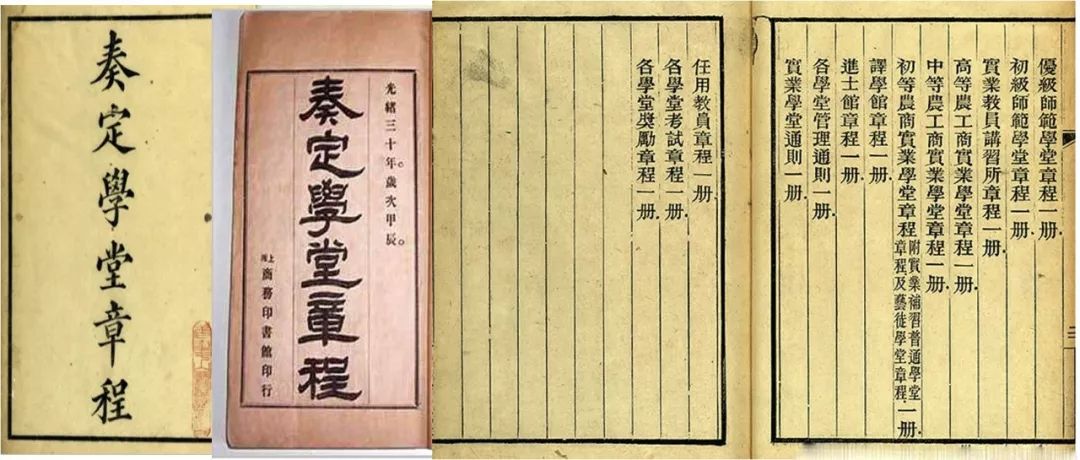 奏定學堂章程
光緒三十年。歲次甲辰。
奏定學堂章程
上海商務印書館印行
優級師範學堂章程一册
初級師範學堂章程一册
實業教員講習所章程一册
高等農工商實業學堂章程一册
中等農工商實業學堂章程一册
初等農商實業學堂章程附實業補習普通學堂章程及藝徒學堂章程一册
譯學館章程一册
進士館章程一册
各學堂管理通則一册
實業學堂通則一册
任用教員章程一册
各學堂考試章程一册
各學堂獎勵章程一册